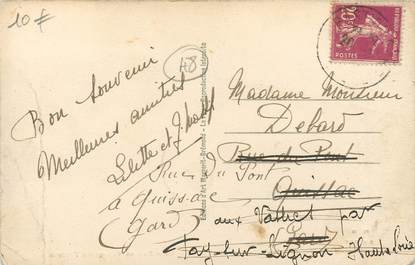 10 F
48
Bon souvenir
Meilleures amitiés
Lilette et
Rue du Pont
à Quissac
(Gard)
20c
POSTES
Madame Monsieur
Debard
Rue du Pont
Quissac
Gard
aux Vastres par
Fay-sur-Lignon Haute Loire